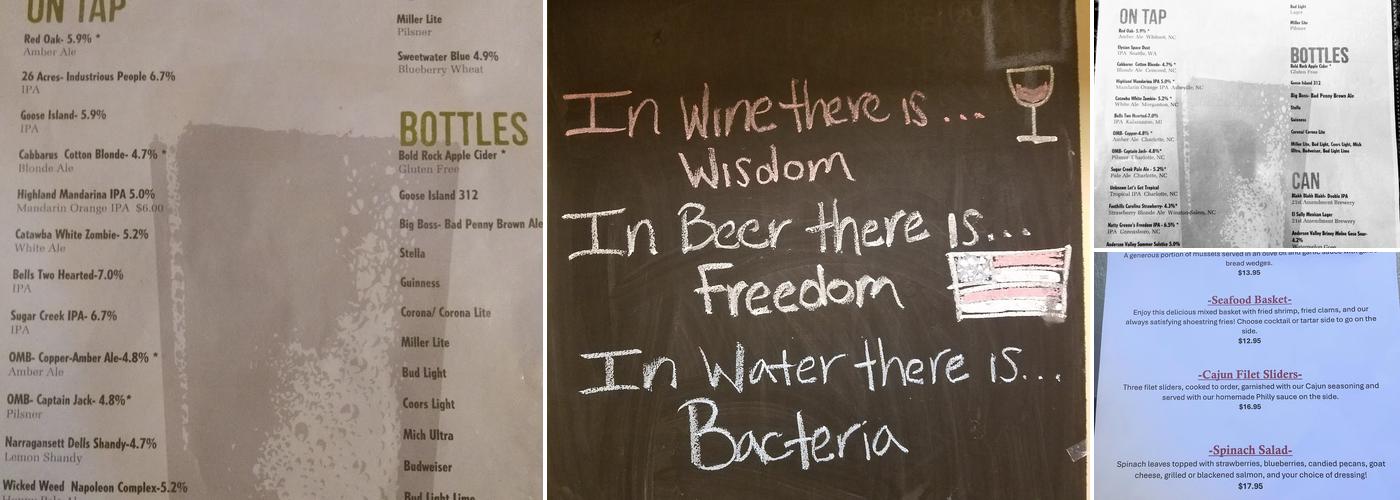 ON TAP
Red Oak- 5.9% *
Amber Ale
26 Acres- Industrious People 6.7%
IPA
Goose Island- 5.9%
IPA
Cabbarus Cotton Blonde- 4.7% *
Blonde Ale
Highland Mandarina IPA 5.0%
Mandarin Orange IPA $6.00
Catawba White Zombie- 5.2%
White Ale
Bells Two Hearted-7.0%
IPA
Sugar Creek IPA- 6.7%
IPA
OMB- Copper-Amber Ale-4.8% *
Amber Ale
OMB- Captain Jack- 4.8%*
Pilsner
Narragansett Dells Shandy-4.7%
Lemon Shandy
Wicked Weed Napoleon Complex-5.2%
Miller Lite
Pilsner
Sweetwater Blue 4.9%
Blueberry Wheat
BOTTLES
Bold Rock Apple Cider *
Gluten Free
Goose Island 312
Big Boss- Bad Penny Brown Ale
Stella
Guinness
Corona/ Corona Lite
Miller Lite
Bud Light
Coors Light
Mich Ultra
Budweiser
Bud Light Lime
In Wine there is...
Wisdom
In Beer there is...
Freedom
In Water there is...
Bacteria
ON TAP
Red Oak- 5.9% *
Amber Ale Whitsett, NC
Elysian Space Dust
IPA Seattle, WA
Cabbarus Cotton Blonde- 4.7% *
Blonde Ale Concord, NC
Highland Mandarina IPA 5.0% *
Mandarin Orange IPA Asheville, NC
Catawba White Zombie- 5.2% *
White Ale Morganton, NC
Bells Two Hearted-7.0%
IPA Kalamazoo, MI
OMB- Copper-4.8% *
Amber Ale Charlotte, NC
OMB- Captain Jack- 4.8%*
Pilsner Charlotte, NC
Sugar Creek Pale Ale - 5.2%*
Pale Ale Charlotte, NC
Unknown Let's Get Tropical
Tropical IPA Charlotte, NC
Foothills Carolina Strawberry- 4.3%*
Strawberry Blonde Ale Winston-Salem, NC
Natty Greene's Freedom IPA - 6.5% *
IPA Greensboro, NC
Anderson Valley Summer Solstice 5.0%
Bud Light
Lager
Miller Lite
Pilsner
BOTTLES
Bold Rock Apple Cider *
Gluten Free
Goose Island 312
Big Boss- Bad Penny Brown Ale
Stella
Guinness
Corona/ Corona Lite
Miller Lite, Bud Light, Coors Light, Mich
Ultra, Budweiser, Bud Light Lime
CAN
Blakh Blakh Blakh- Double IPA
21st Amendment Brewery
El Sully Mexican Lager
21st Amendment Brewery
Anderson Valley Briney Melon Gose Sour-
4.2%
Watermelon Gose
A generous portion of mussels served in an olive oil and garlic sauce with
bread wedges.
$13.95
-Seafood Basket-
Enjoy this delicious mixed basket with fried shrimp, fried clams, and our
always satisfying shoestring fries! Choose cocktail or tartar side to go on the
side.
$12.95
-Cajun Filet Sliders-
Three filet sliders, cooked to order, garnished with our Cajun seasoning and
served with our homemade Philly sauce on the side.
$16.95
-Spinach Salad-
Spinach leaves topped with strawberries, blueberries, candied pecans, goat
cheese, grilled or blackened salmon, and your choice of dressing!
$17.95